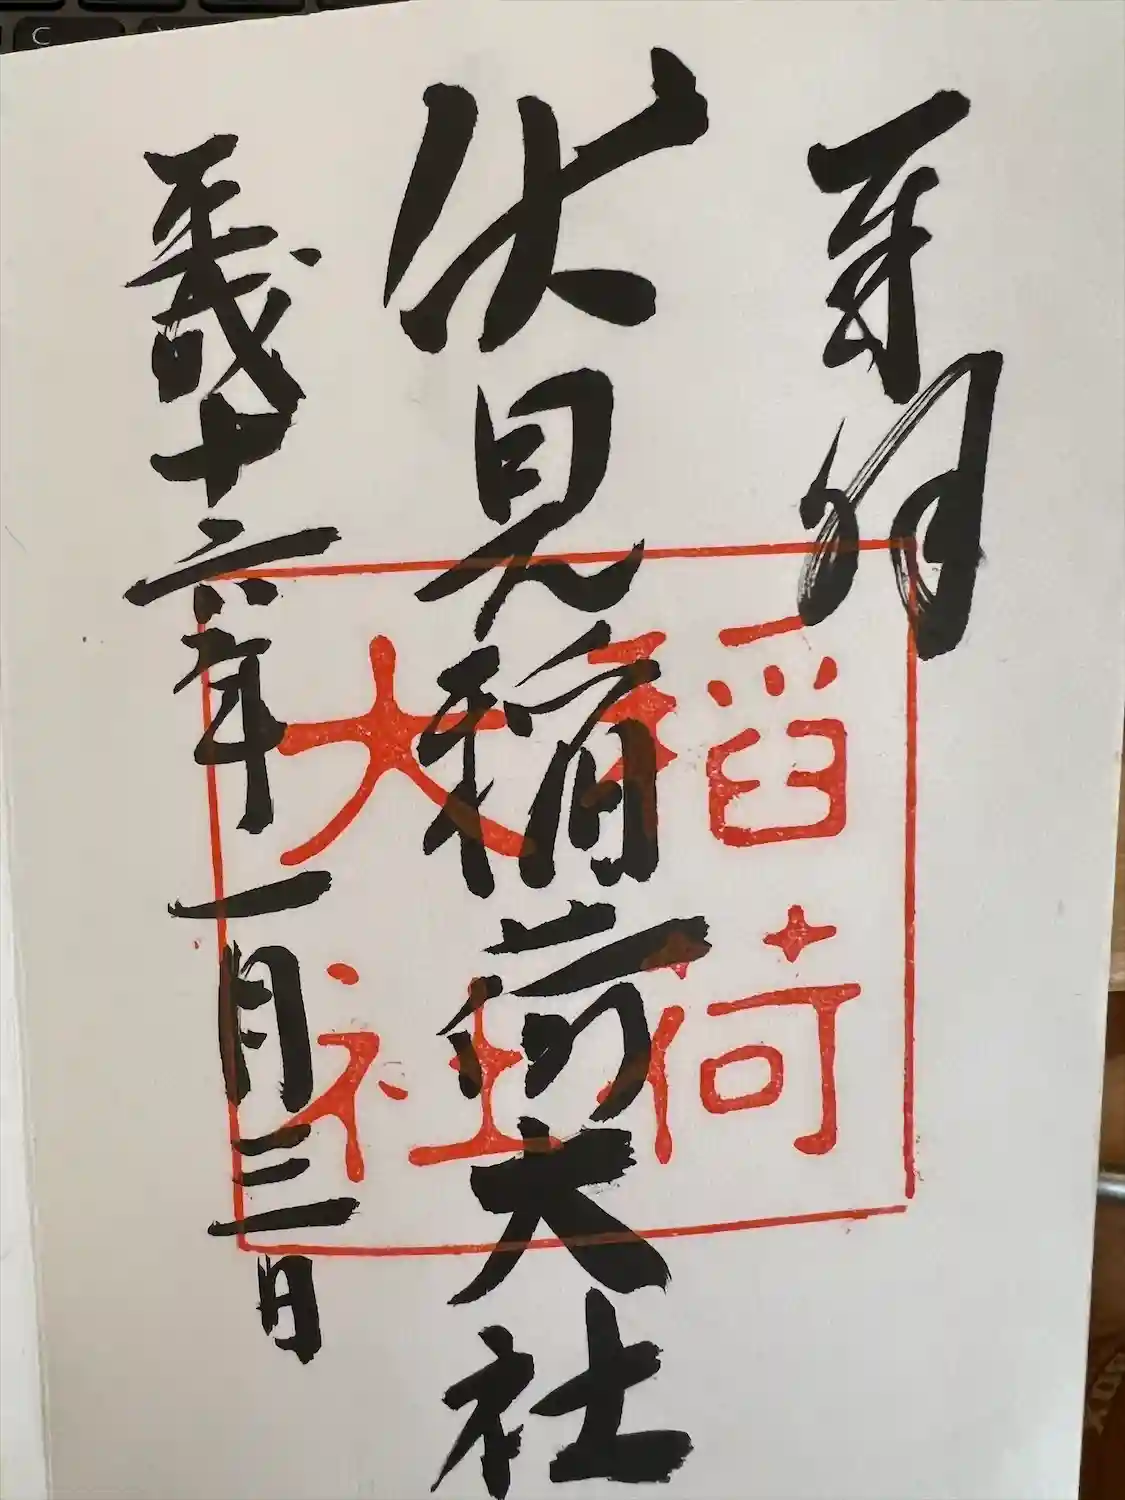 伏見稲荷大社
平成十六年一月三日
稲荷
大社
C